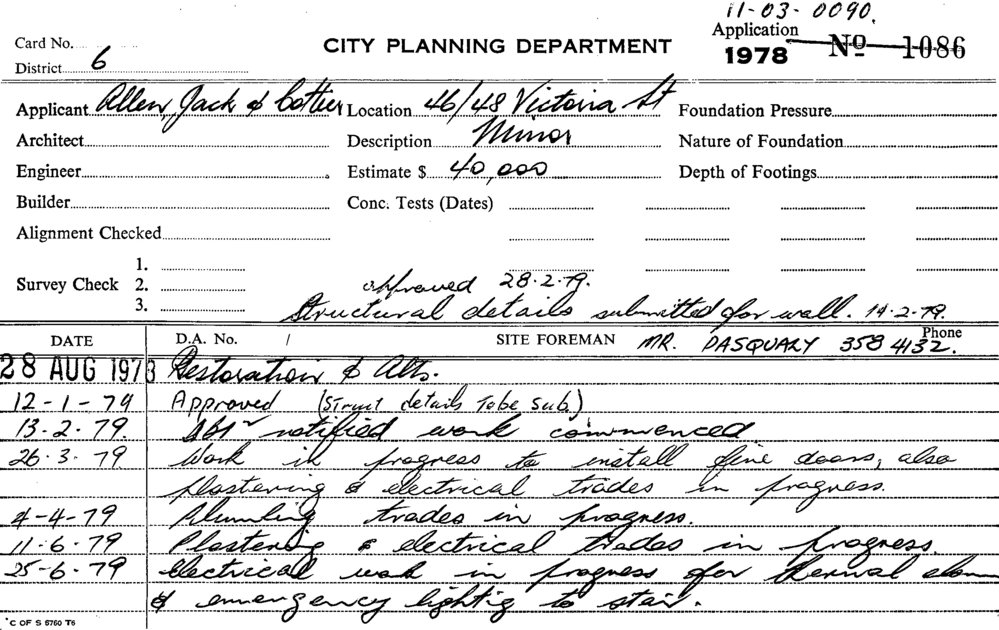 11-03-0090.
Card No.
CITY PLANNING DEPARTMENT
Application
1978 No 1086
District 6
Applicant Allen, Jack & Cottier Location 46/48 Victoria St Foundation Pressure
Architect Description Minor Nature of Foundation
Engineer Estimate $ 40,000 Depth of Footings
Builder Conc. Tests (Dates)
Alignment Checked
1.
Survey Check 2. approved 28.2.79.
3. Structural details submitted for wall. 14.2.79.
DATE D.A. No. / SITE FOREMAN MR. PASQUARY Phone 358 4132.
28 AUG 1978 Restoration & Alts.
12-1-79 Approved (Struct details to be sub.)
13.2.79. notified work commenced
26.3.79 Work in progress to install fire doors, also
plastering & electrical trades in progress.
4-4-79 Plumbing trades in progress.
11.6.79 Plastering & electrical trades in progress.
25-6.79 Electrical work in progress for thermal alarm
& emergency lightig to stair.
C OF S 5760 T6